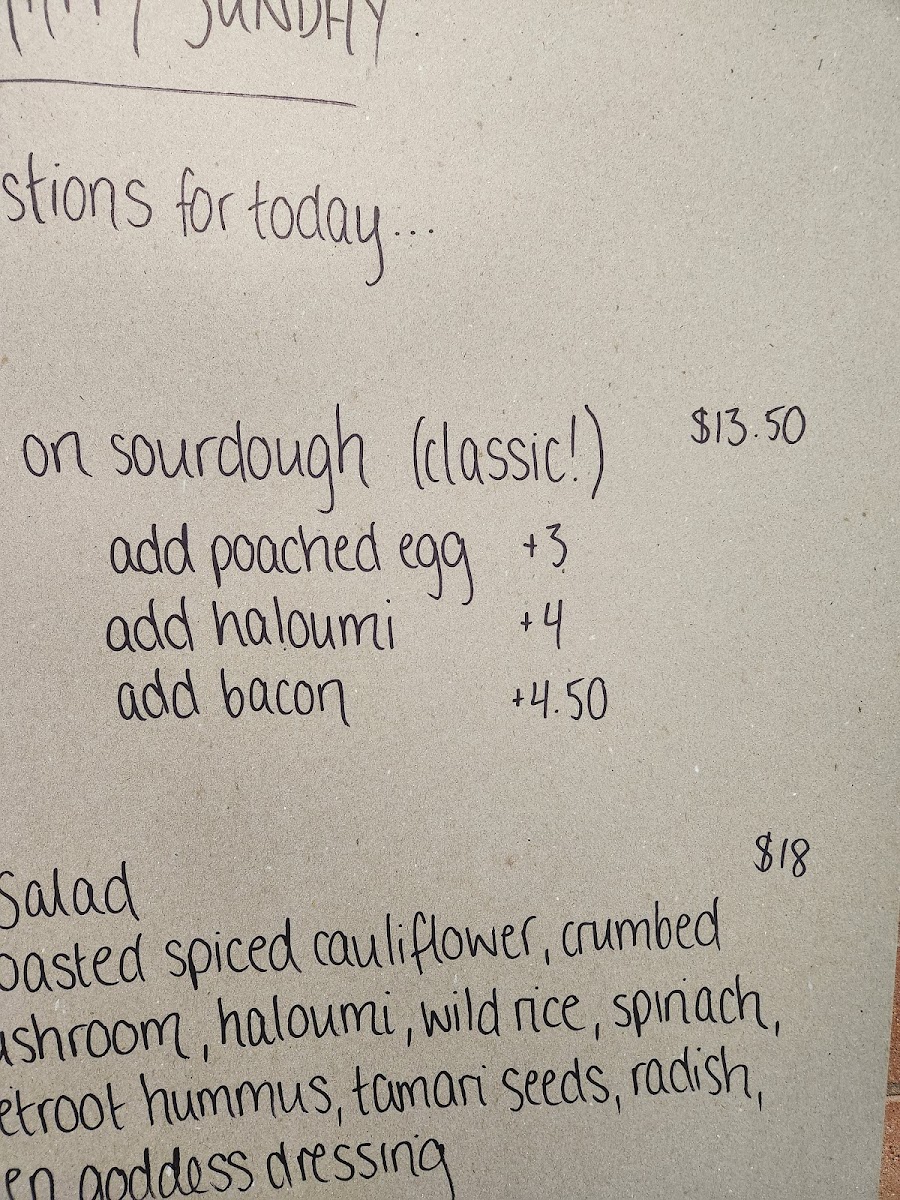 SUNDAY.
for today...
on sourdough (classic!) $13.50
add poached egg +3
add haloumi +4
add bacon +4.50
Salad $18
spiced cauliflower, crumbed
haloumi, wild rice, spinach,
hummus, tamari seeds, radish,
goddess dressing